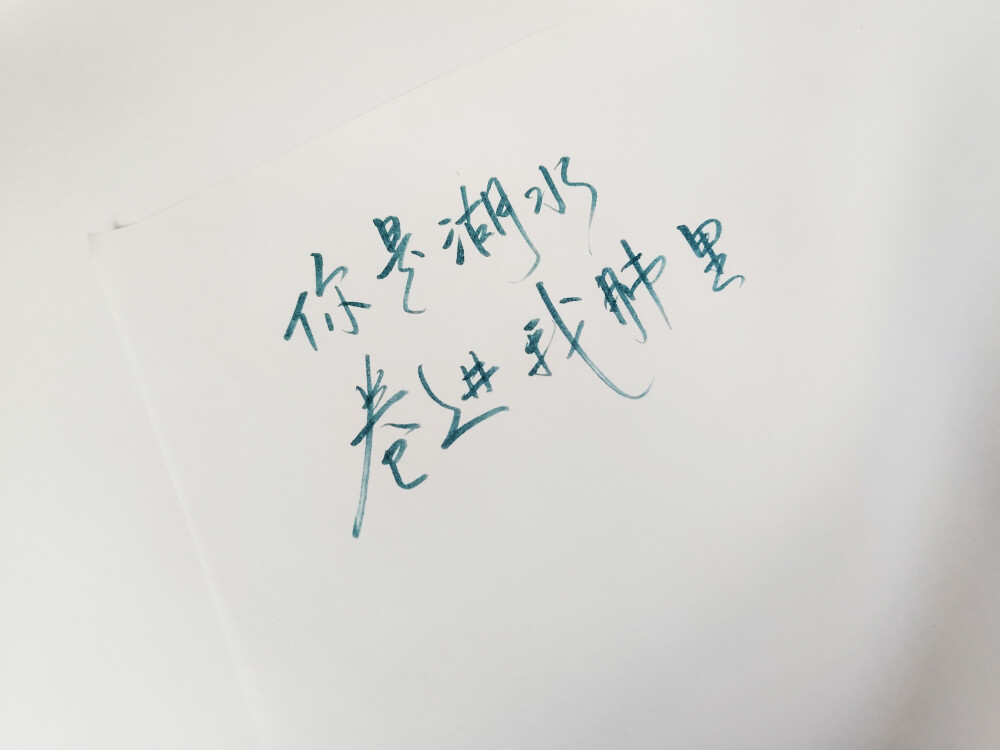 你是湖水
卷进我肺里